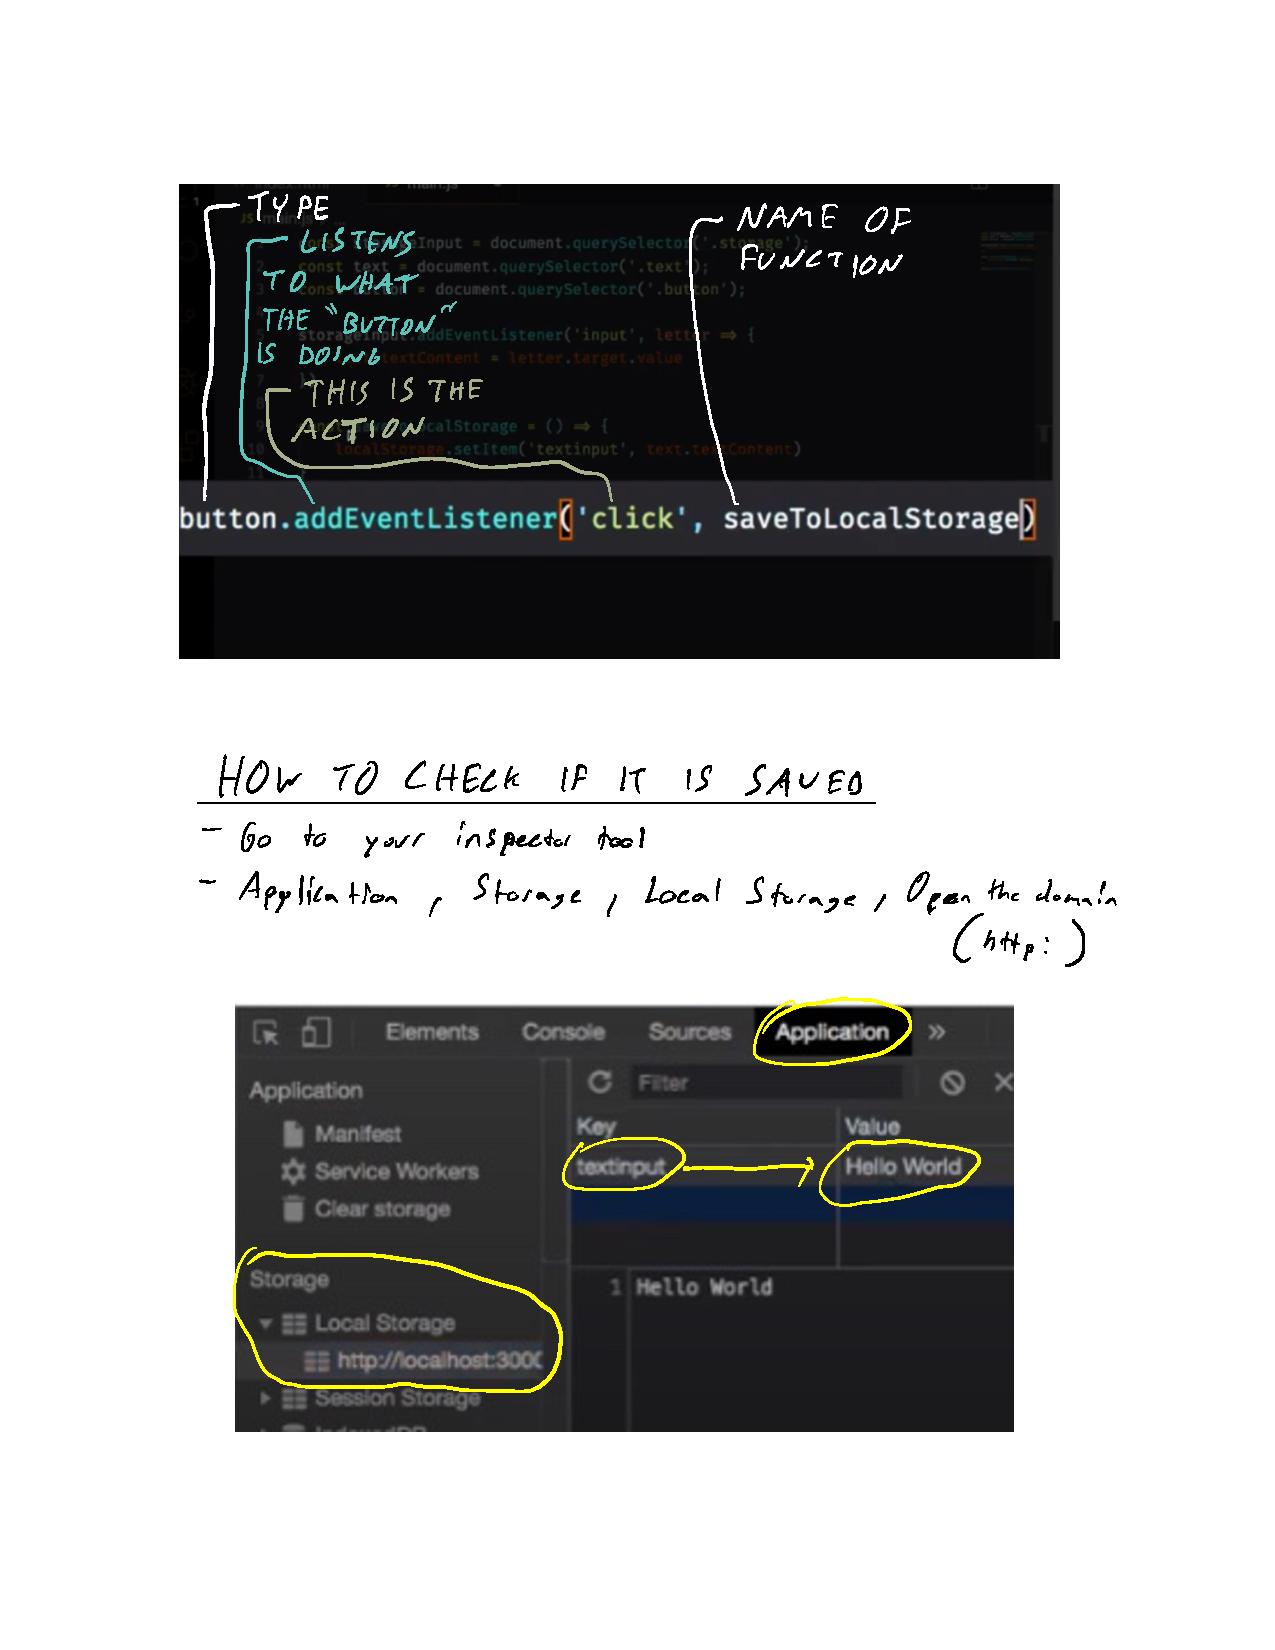 main.js
TYPE
LISTENS
TO WHAT
THE "BUTTON"
IS DOING
THIS IS THE
ACTION
NAME OF
FUNCTION
= document.querySelector('.storage');
const text = document.querySelector('.text');
= document.querySelector('.button');
addEventListener('input', letter => {
textContent = letter.target.value
LocalStorage = () => {
10 localStorage.setItem('textinput', text.textContent)
11
button.addEventListener('click', saveToLocalStorage)
HOW TO CHECK IF IT IS SAVED
- Go to your inspector tool
- Application, Storage, Local Storage, Open the domain
(http:)
Elements Console Sources Application »
Application
Manifest
Service Workers
Clear storage
Storage
Local Storage
http://localhost:3000
Session Storage
IndexedDB
Filter
Key Value
textinput Hello World
1 Hello World